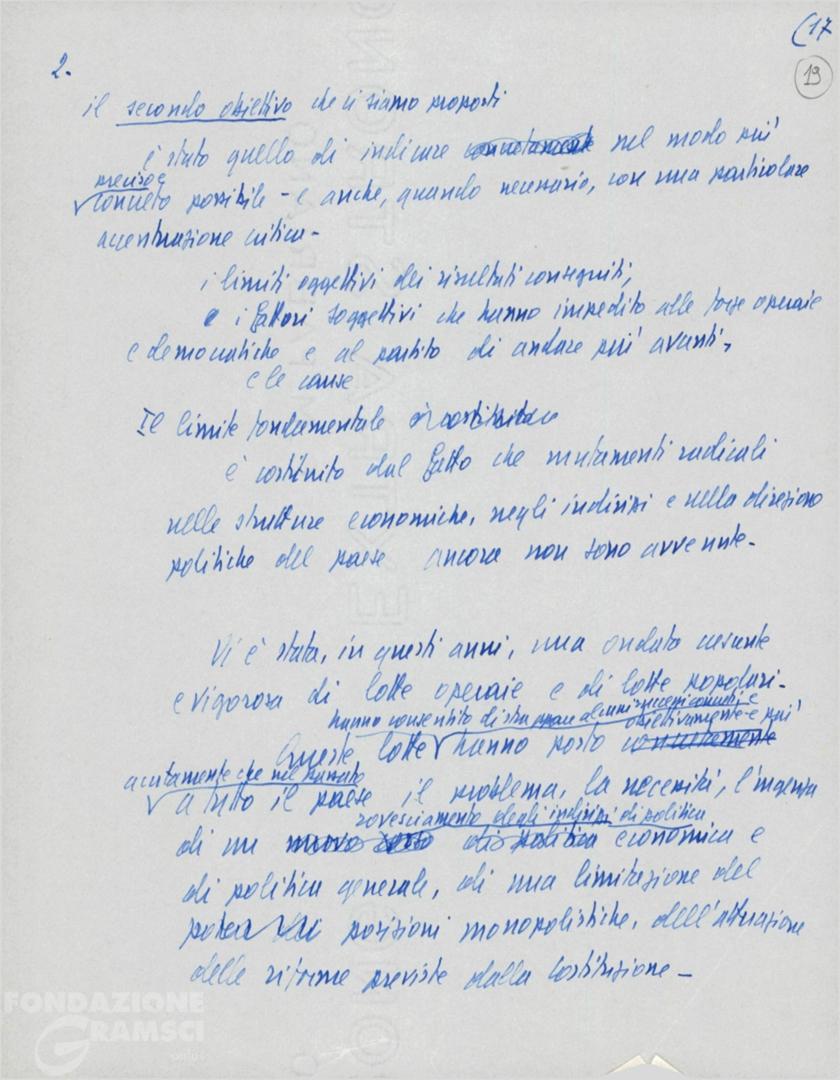 (17
19
2.
il secondo obiettivo che ci siamo proposti
è stato quello di indicare concretamente nel modo più
preciso e
concreto possibile - e anche, quando necessario, con una particolare
accentuazione critica -
i limiti oggettivi dei risultati conseguiti,
e i fattori soggettivi che hanno impedito alle forze operaie
e democratiche e al partito di andare più avanti,
e le cause
Il limite fondamentale
è costituito dal fatto che mutamenti radicali
nelle strutture economiche, negli indirizzi e nella direzione
politiche del paese ancora non sono avvenute -
Vi è stata, in questi anni, una ondata crescente
e vigorosa di lotte operaie e di lotte popolari -
hanno consentito di successi e
obiettivamente e più
Queste lotte hanno posto concretamente
acutamente che nel passato
a tutto il paese il problema, la necessità, l'urgenza
rovesciamento degli indirizzi di politica
di un nuovo corso di politica economica e
di politica generale, di una limitazione del
posizioni monopolistiche, dell'attuazione
delle riforme previste dalla Costituzione -
FONDAZIONE
GRAMSCI
onlus